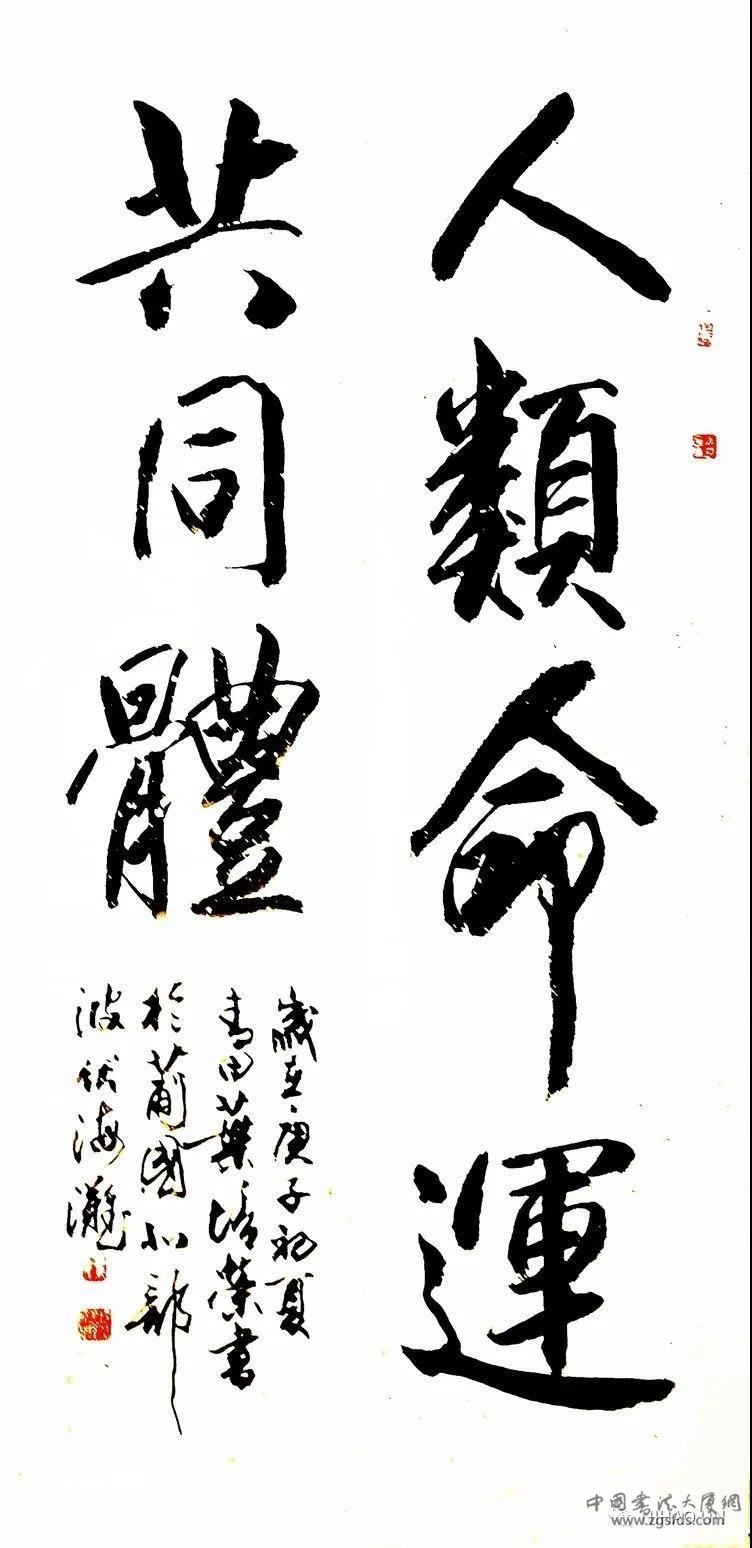 人類命運
共同體
歲在庚子初夏
青田葉培榮書
於葡國北部
波伏海灘
中国書法大厦網
www.zgsfds.com